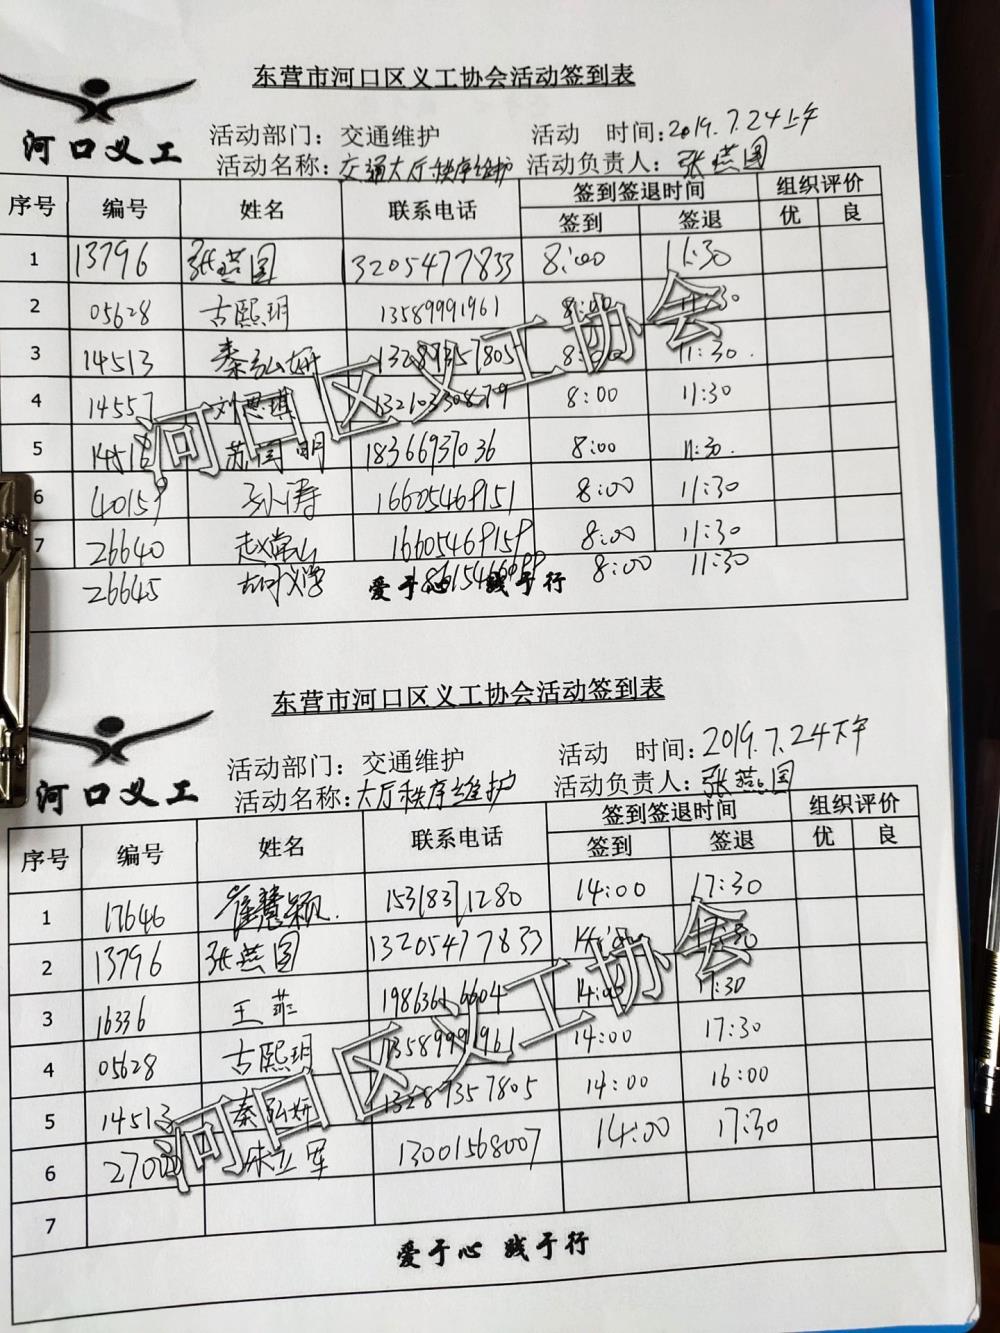 东营市河口区义工协会活动签到表
河口义工
活动部门：交通维护 活动 时间：2019.7.24上午
活动名称：交通大厅秩序维护 活动负责人：张燕国
序号 编号 姓名 联系电话 签到签退时间 组织评价
签到 签退 优 良
1 13796 张燕国 13205477833 8:00 11:30
2 05628 古熙玥 13589991961 8:00
3 14513 秦弘妍 13287357805 8:00 11:30.
4 14557 刘思琪 8:00 11:30
5 苏国明 18366937036 8:00 11:30.
6 40159 孙涛 16605469151 8:00 11:30
7 26640 赵常山 16605469159 8:00 11:30
26645 8:00 11:30
爱于心 践于行
河口区义工协会
东营市河口区义工协会活动签到表
河口义工
活动部门：交通维护 活动 时间：2019.7.24下午
活动名称：大厅秩序维护 活动负责人：张燕国
序号 编号 姓名 联系电话 签到签退时间 组织评价
签到 签退 优 良
1 17646 崔慧颖. 15318371280 14:00 17:30
2 13796 张燕国 13205477833 14:00
3 16336 王菲 19863616604 14:00 17:30
4 05628 古熙玥 13589991961 14:00 17:30
5 14513 秦弘妍 13287357805 14:00 16:00
6 朱立军 13001568007 14:00 17:30
7
爱于心 践于行
河口区义工协会